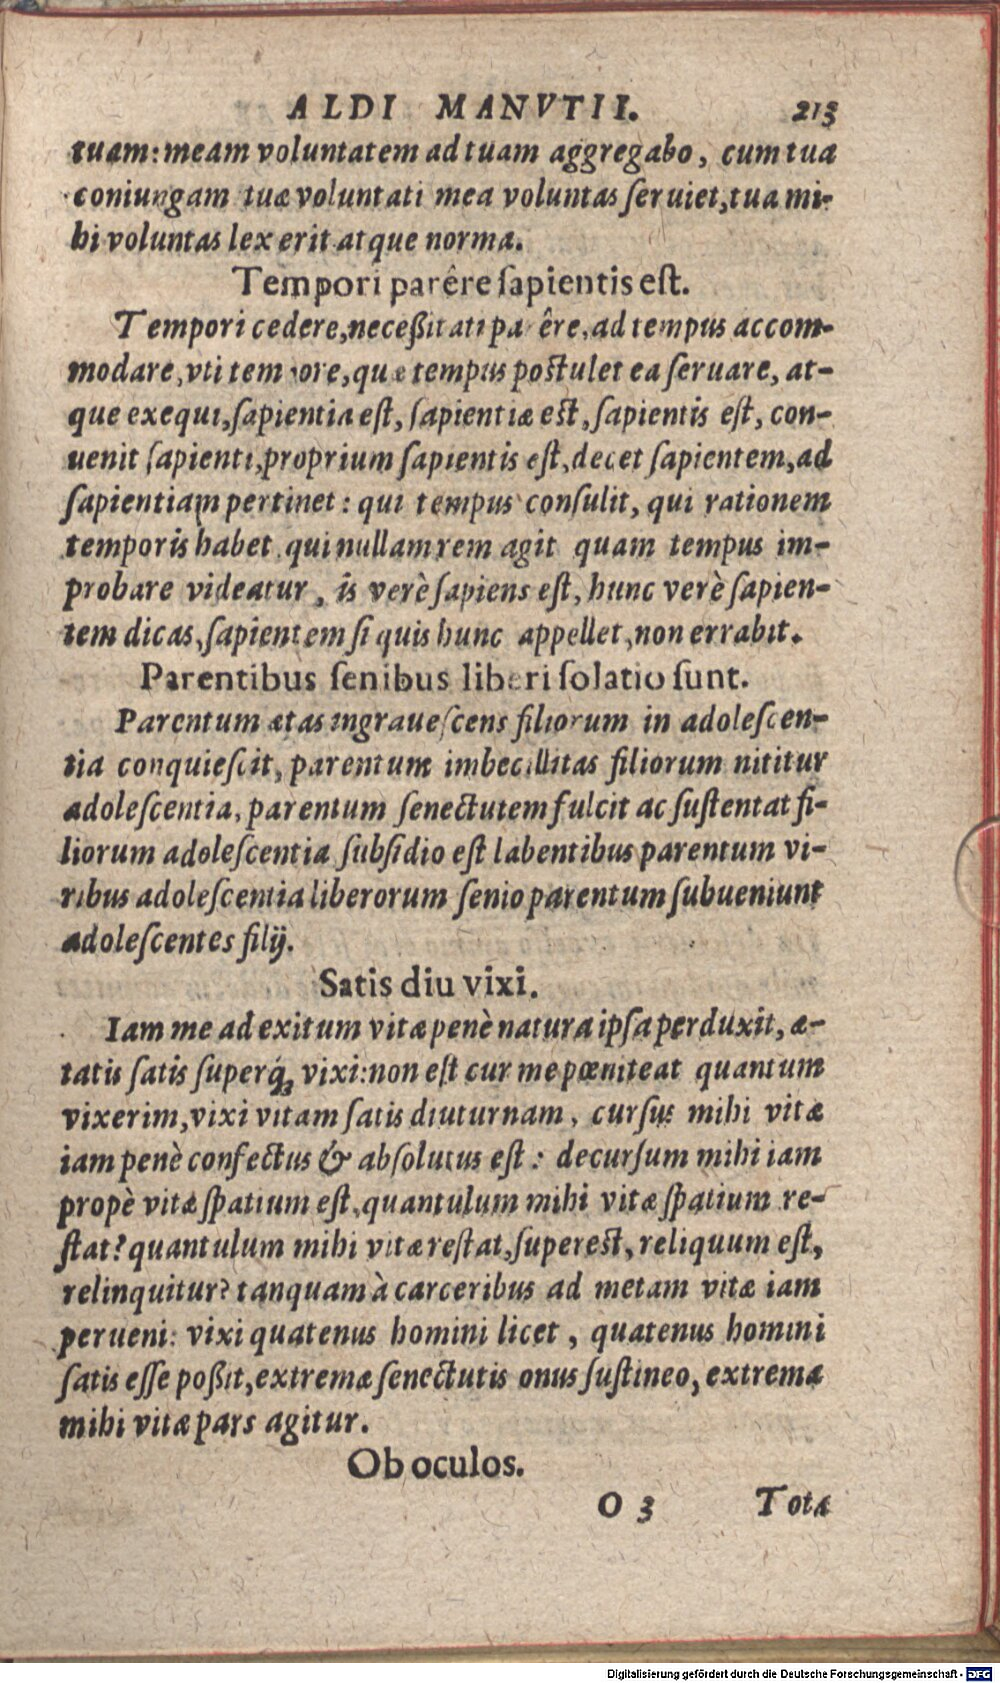 ALDI MANVTII. 213
tuam: meam voluntatem ad tuam aggregabo, cum tua
coniungam tuæ voluntati mea voluntas ſeruiet, tua mi-
hi voluntas lex erit atque norma.
Tempori parêre ſapientis eſt.
Tempori cedere, neceßitati parêre, ad tempus accom-
modare, vti tempore, quæ tempus poſtulet ea ſeruare, at-
que exequi, ſapientia eſt, ſapientiæ eſt, ſapientis eſt, con-
uenit ſapienti, proprium ſapientis eſt, decet ſapientem, ad
ſapientiam pertinet: qui tempus conſulit, qui rationem
temporis habet, qui nullam rem agit quam tempus im-
probare videatur, is verè ſapiens eſt, hunc verè ſapien-
tem dicas, ſapientem ſi quis hunc appellet, non errabit.
Parentibus ſenibus liberi ſolatio ſunt.
Parentum ætas ingraueſcens filiorum in adoleſcen-
tia conquieſcit, parentum imbecillitas filiorum nititur
adoleſcentia, parentum ſenectutem fulcit ac ſuſtentat fi-
liorum adoleſcentia ſubſidio eſt labentibus parentum vi-
ribus adoleſcentia liberorum ſenio parentum ſubueniunt
adoleſcentes filij.
Satis diu vixi.
Iam me ad exitum vitæ penè natura ipſa perduxit, æ-
tatis ſatis ſuperq́; vixi: non eſt cur me pœniteat quantum
vixerim, vixi vitam ſatis diuturnam, curſus mihi vitæ
iam penè confectus & abſolutus eſt: decurſum mihi iam
propè vitæ ſpatium eſt, quantulum mihi vitæ ſpatium re-
ſtat? quantulum mihi vitæ reſtat, ſupereſt, reliquum eſt,
relinquitur? tanquam à carceribus ad metam vitæ iam
perueni: vixi quatenus homini licet, quatenus homini
ſatis eſſe poßit, extremæ ſenectutis onus ſuſtineo, extrema
mihi vitæ pars agitur.
Ob oculos.
O 3 Totæ
Digitalisierung gefördert durch die Deutsche Forschungsgemeinschaft - DFG